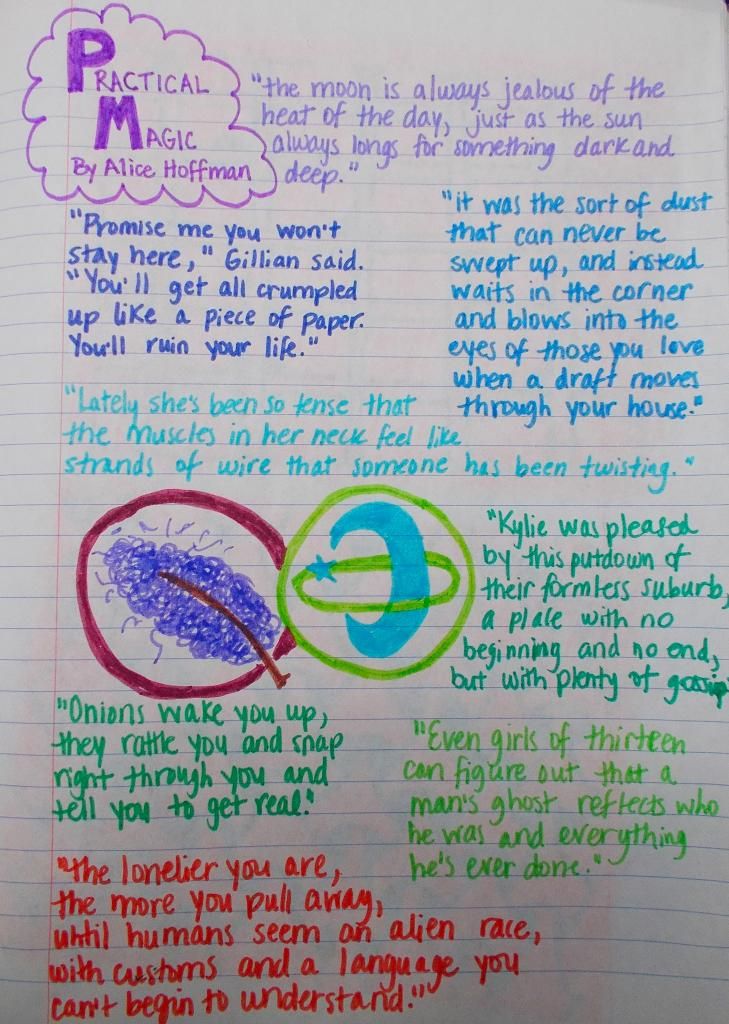 PRACTICAL
MAGIC
By Alice Hoffman
"the moon is always jealous of the
heat of the day, just as the sun
always longs for something dark and
deep."
"Promise me you won't
stay here," Gillian said.
"You'll get all crumpled
up like a piece of paper.
You'll ruin your life."
"it was the sort of dust
that can never be
swept up, and instead
waits in the corner
and blows into the
eyes of those you love
when a draft moves
through your house."
"Lately she's been so tense that
the muscles in her neck feel like
strands of wire that someone has been twisting."
"Kylie was pleased
by this putdown of
their formless suburb,
a place with no
beginning and no end,
but with plenty of gossip
"Onions wake you up,
they rattle you and snap
right through you and
tell you to get real."
"Even girls of thirteen
can figure out that a
man's ghost reflects who
he was and everything
he's ever done."
"the lonelier you are,
the more you pull away,
until humans seem an alien race,
with customs and a language you
can't begin to understand."